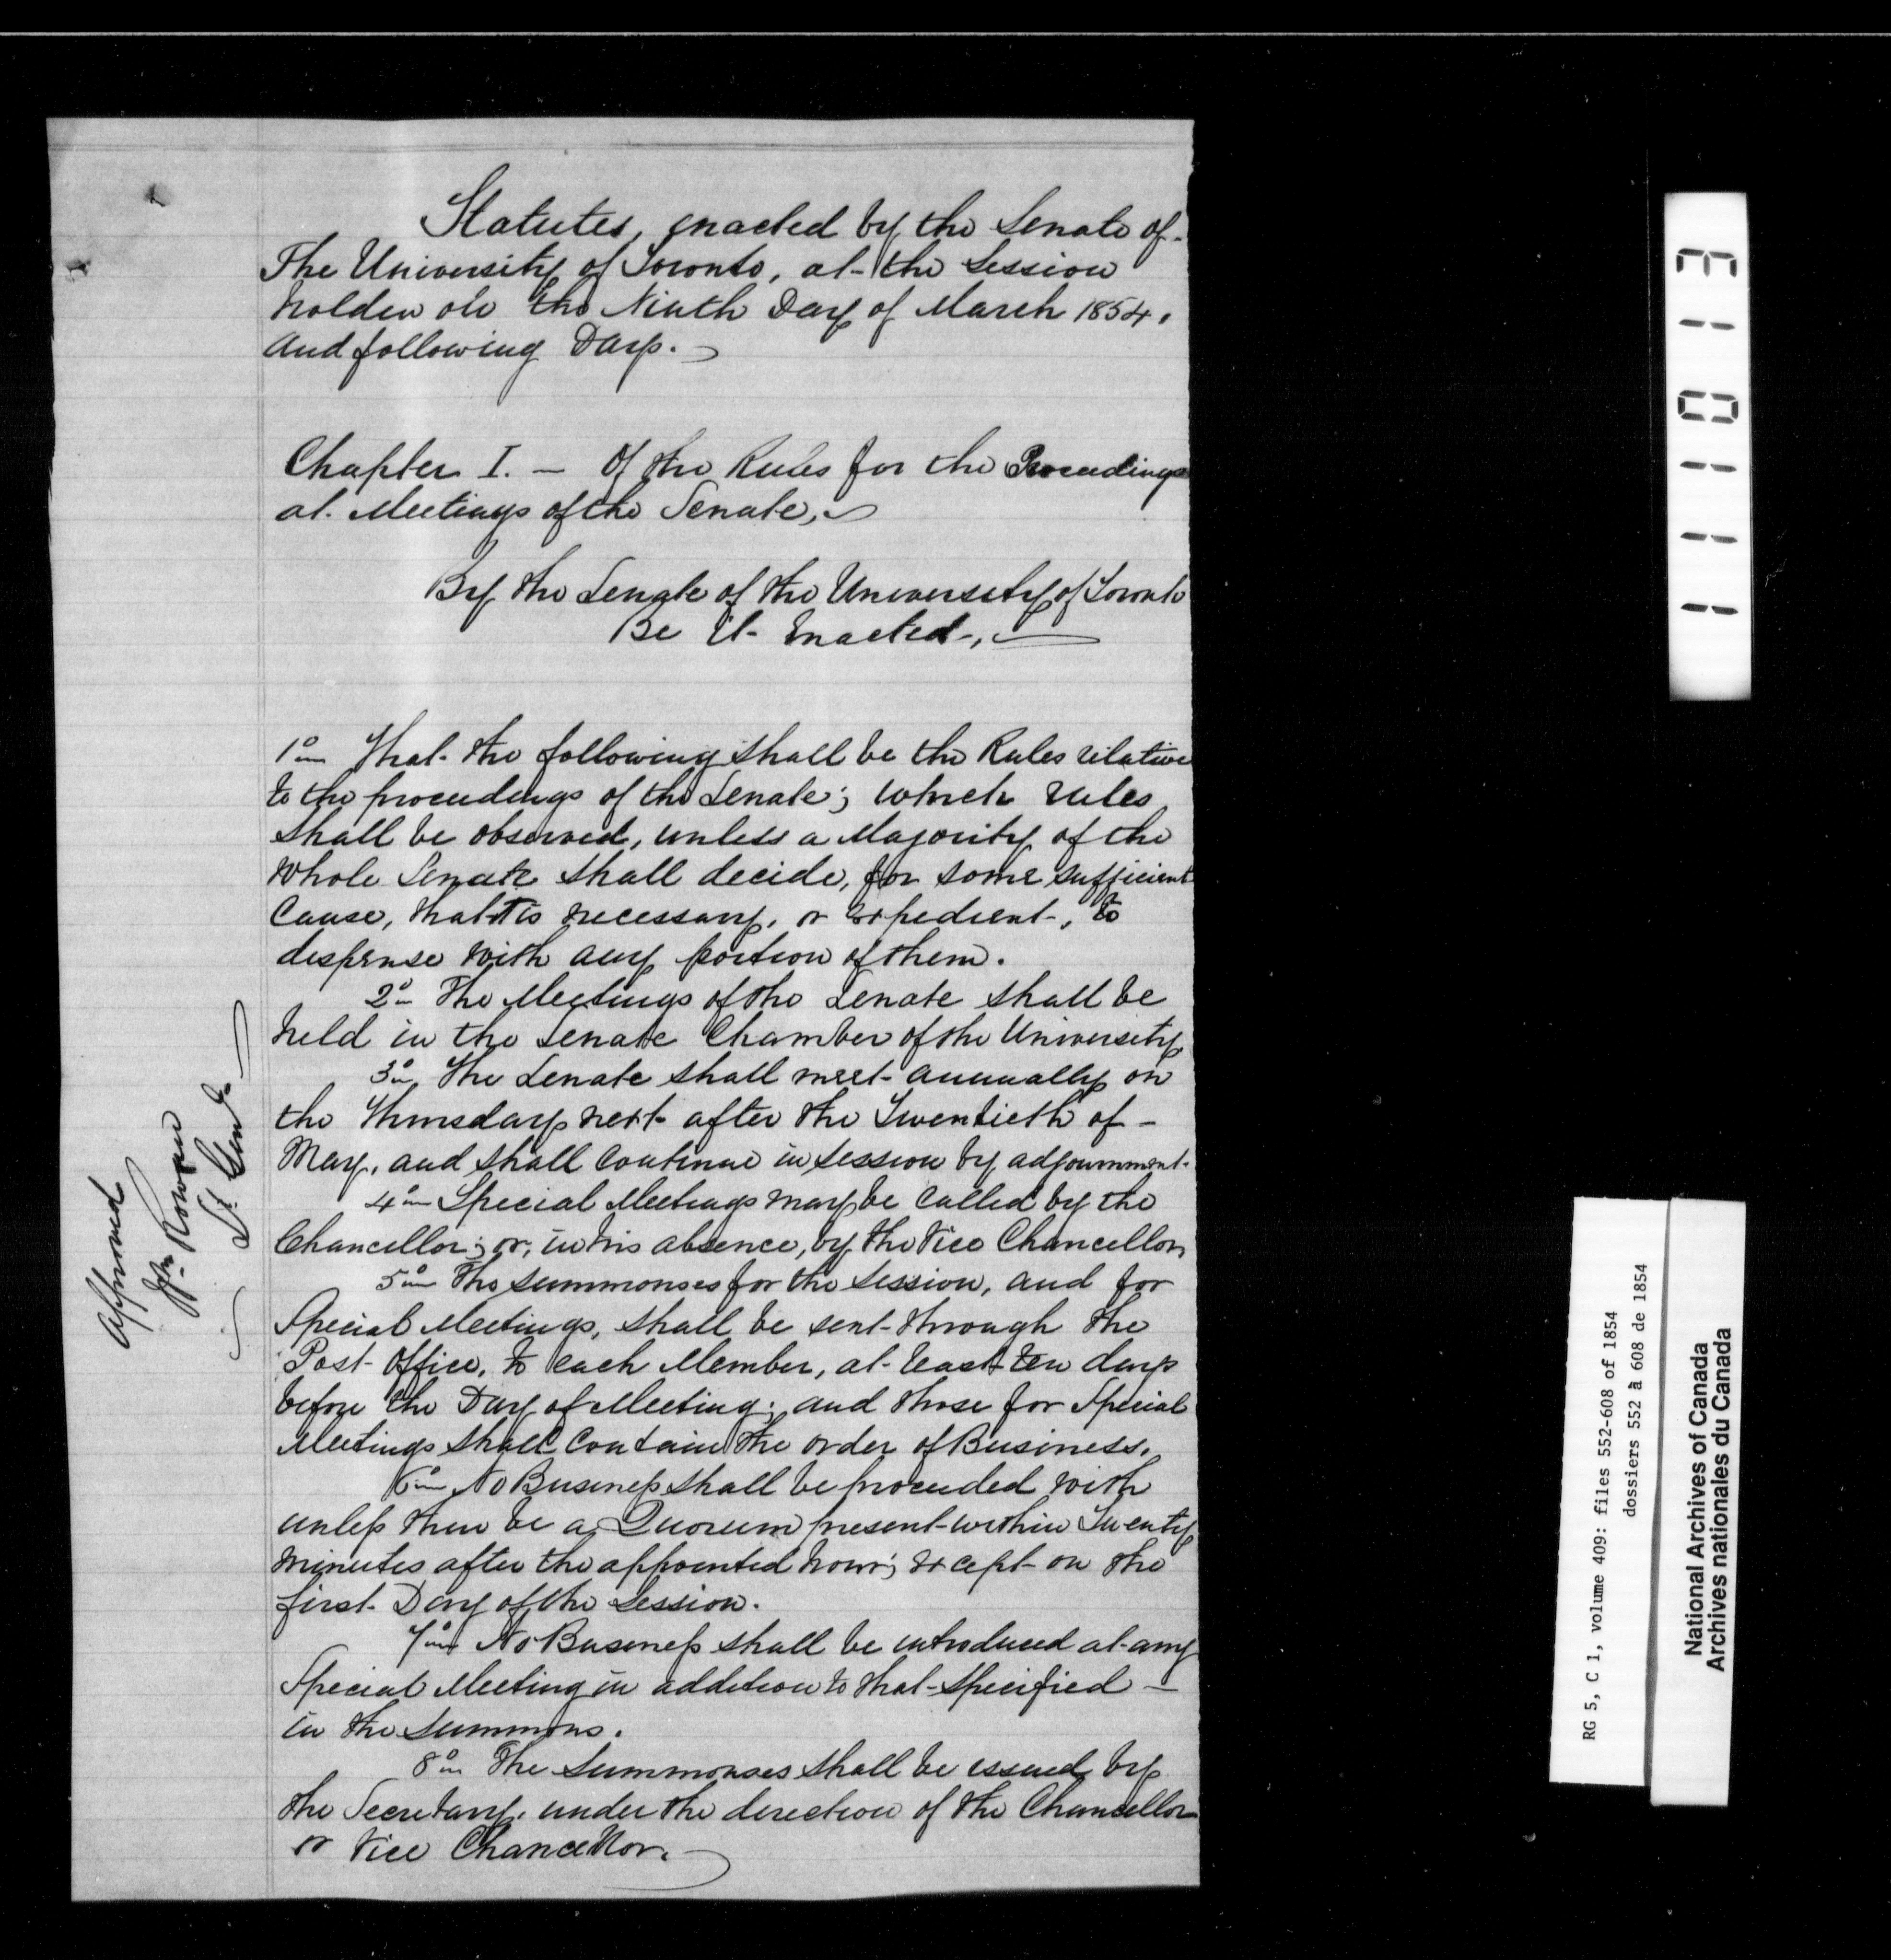 Statutes, enacted by the Senate of
The University of Toronto, at the Session
holden on the Ninth Day of March 1854,
and following Days.
Chapter I. — Of the Rules for the Proceedings
at Meetings of the Senate,
By the Senate of the University of Toronto
Be It Enacted,
1o That the following shall be the Rules relative
to the proceedings of the Senate; which rules
shall be observed, unless a Majority of the
whole Senate shall decide, for some sufficient
Cause, that it is necessary, or expedient, to
dispense with any portion of them.
2o The Meetings of the Senate shall be
held in the Senate Chamber of the University
3o The Senate shall meet annually on
the Thursday next after the Twentieth of —
May, and shall continue in session by adjournment.
4o Special Meetings may be called by the
Chancellor; or, in his absence, by the Vice Chancellor,
5o The summonses for the Session, and for
Special Meetings, shall be sent through the
Post Office, to each Member, at least ten days
before the Day of Meeting; and those for Special
Meetings shall contain the order of Business.
6o No Business shall be proceeded with
unless there be a Quorum present within Twenty
minutes after the appointed hour; except on the
first Day of the Session.
7o No Business shall be introduced at any
Special Meeting in addition to that specified —
in the Summons.
8o The Summonses shall be issued by
the Secretary, under the direction of the Chancellor
or Vice Chancellor.
Approved
Wm Rowan
Lt Genl
111013
RG 5, C 1, volume 409: files 552-608 of 1854
dossiers 552 à 608 de 1854
National Archives of Canada
Archives nationales du Canada